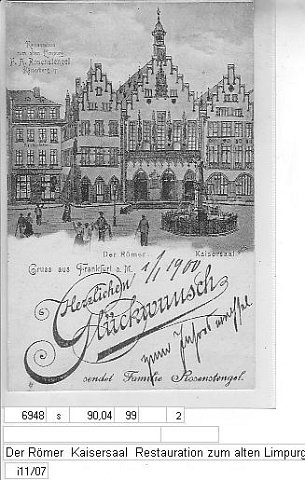 Restauration
zum alten Limpurg
F. A. Rosenstengel
Römerberg 17
Der Römer Kaisersaal
Gruss aus Frankfurt a. M. 1/1 1900
Herzlichen
Glückwunsch
zum Jahreswechsel
sendet Familie Rosenstengel.
6948 s 90,04 99 2
Der Römer Kaisersaal Restauration zum alten Limpurg
i11/07